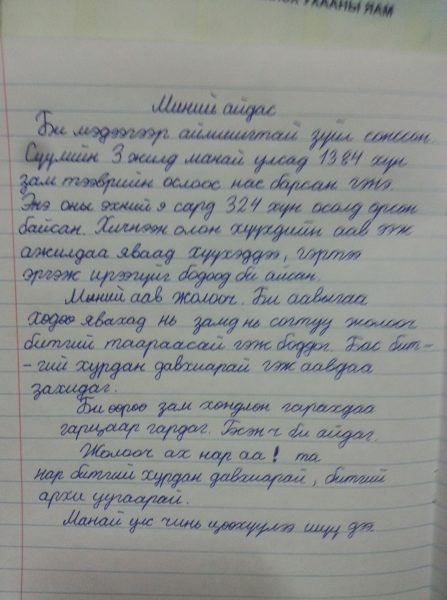 УХААНЫ ЯАМ
Миний айдас
Би мэдээгээр аймшигтай зүйл сонссон.
Сүүлийн 3 жилд манай улсад 1384 хүн
зам тээврийн ослоос нас барсан гэнэ.
Энэ оны эхний 9 сард 324 хүн осолд орсон
байсан. Хичнээн олон хүүхдийн аав ээж
ажилдаа яваад хүүхэддээ, гэртээ
эргэж ирээгүйг бодоод би айсан.
Миний аав жолооч. Би аавыгаа
хөдөө явахад нь замд нь согтуу жолооч
битгий таараасай гэж боддог. Бас бит-
-гий хурдан давхиарай гэж аавдаа
захидаг.
Би өөрөө зам хөндлөн гарахдаа
гарцаар гардаг. Гэсэн ч би айдаг.
Жолооч ах нар аа! та
нар битгий хурдан давхиарай, битгий
архи уугаарай.
Манай улс чинь цөөхүүлээ шүү дээ.